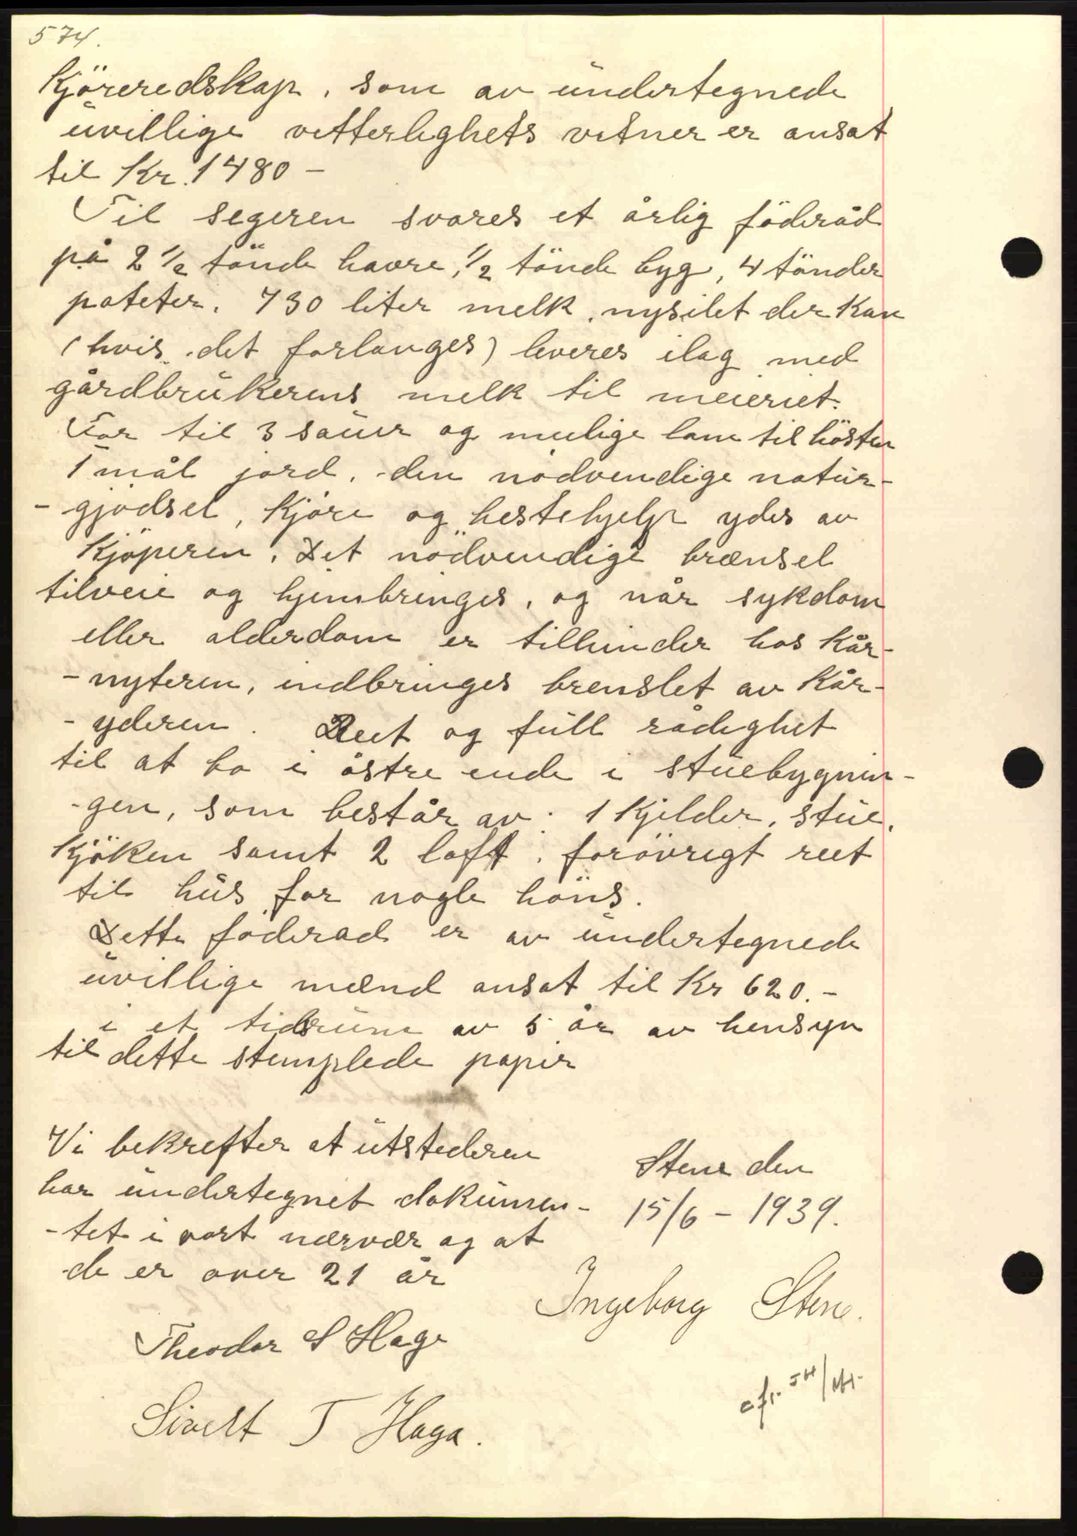 574.
Kjöreredskap, som av undertegnede
uvillige vitterlighets vitner er ansat
til Kr. 1480 -
Til segeren svares et årlig föderåd
på 2 1/2 tönde havre, 1/2 tönde byg, 4 tönder
poteter. 730 liter melk, nysilet der kan
(hvis det forlanges) leveres ilag med
gårdbrukerens melk til meieriet.
For til 3 sauer og mulige lam til hösten
1 mål jord, den nödvendige natur-
- gjödsel, Kjöre og hestehjelp ydes av
Kjöperen. Det nödvendige brænsel
tilveie og hjembringes, og når sykdom
eller alderdom er tilhinder hos Kår-
- nyteren, indbringes brenslet av Kår-
- yderen. Rett og full rådighet
til at bo i östre ende i stuebygnin-
- gen, som består av: 1 Kjelder, stue,
Kjöken samt 2 loft. forövrigt rett
til hus for nogle höns.
Dette föderad er av undertegnede
uvillige mænd ansat til Kr 620.-
i et tidsrum av 5 år av hensyn
til dette stemplede papir
Vi bekrefter at utstederen
har undertegnet dokumen-
- tet i vort nærvær og at
de er over 21 år
Theodor S Hage
Sivert T Haga.
Stene den
15/6 - 1939.
Ingeborg Stene.